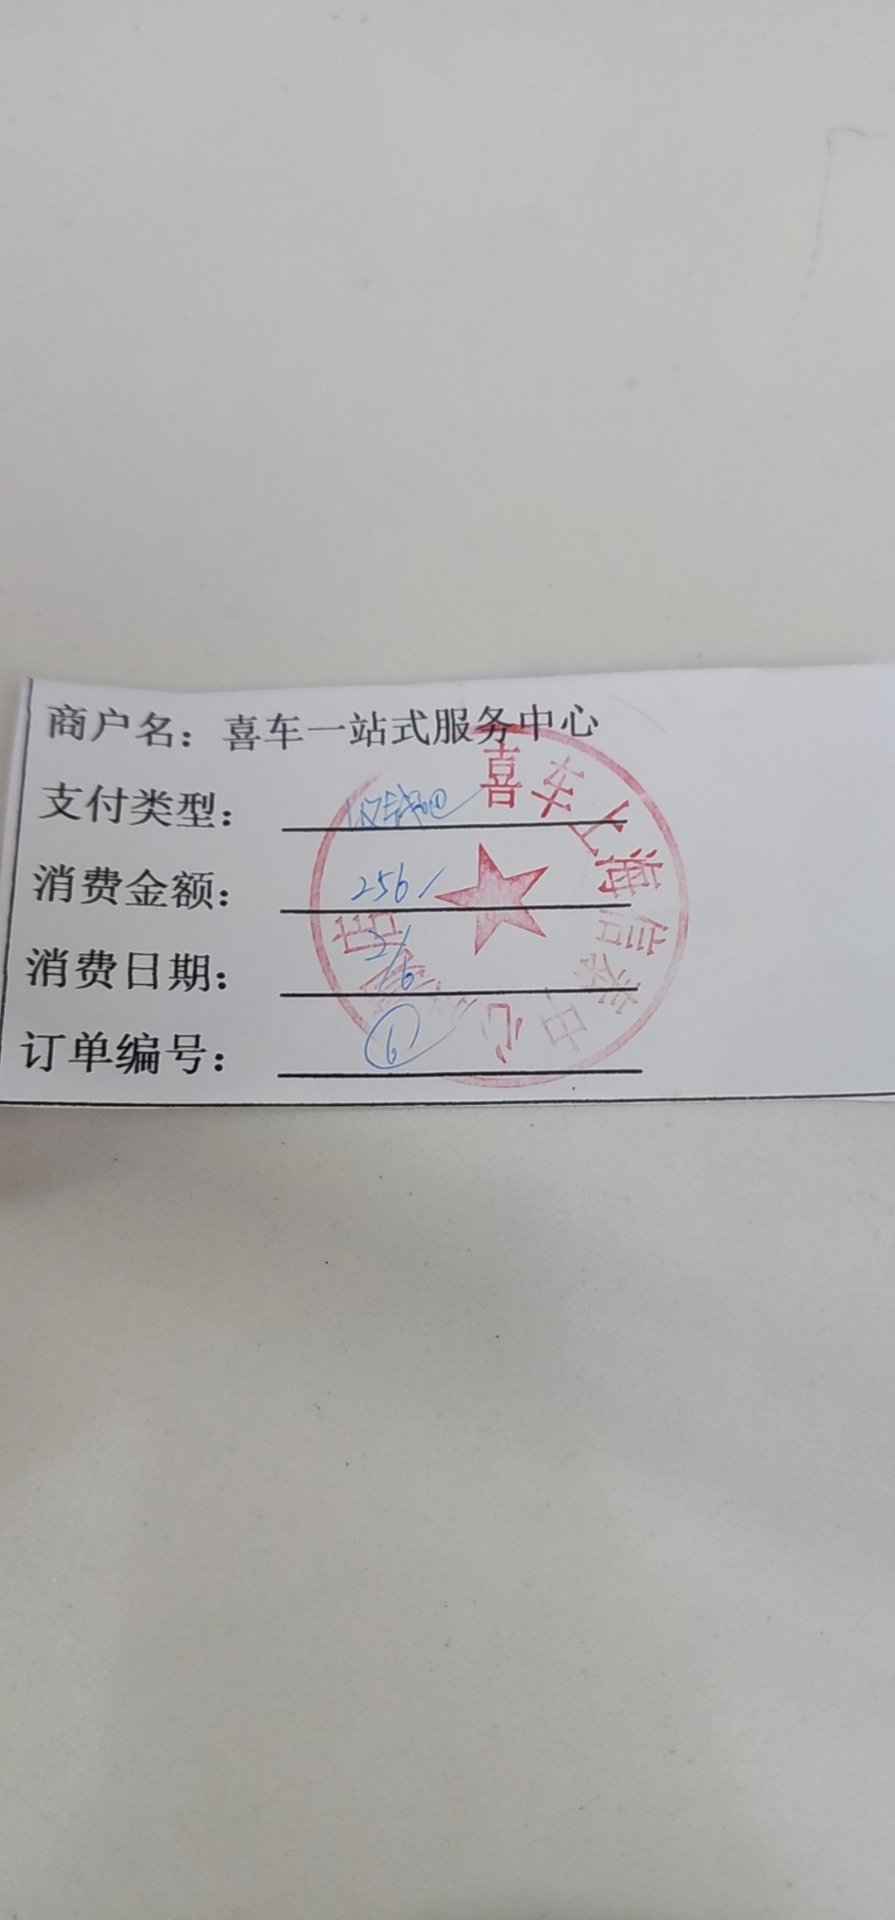 商户名：喜车一站式服务中心
支付类型：收钱吧
消费金额：256/
消费日期：2/6
订单编号：6
喜车上海信息中心